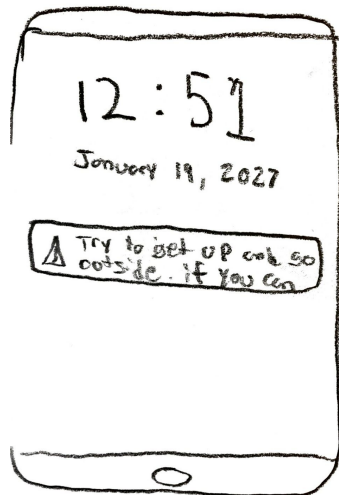 12:51
January 19, 2027
Try to get up and go
outside. if you can